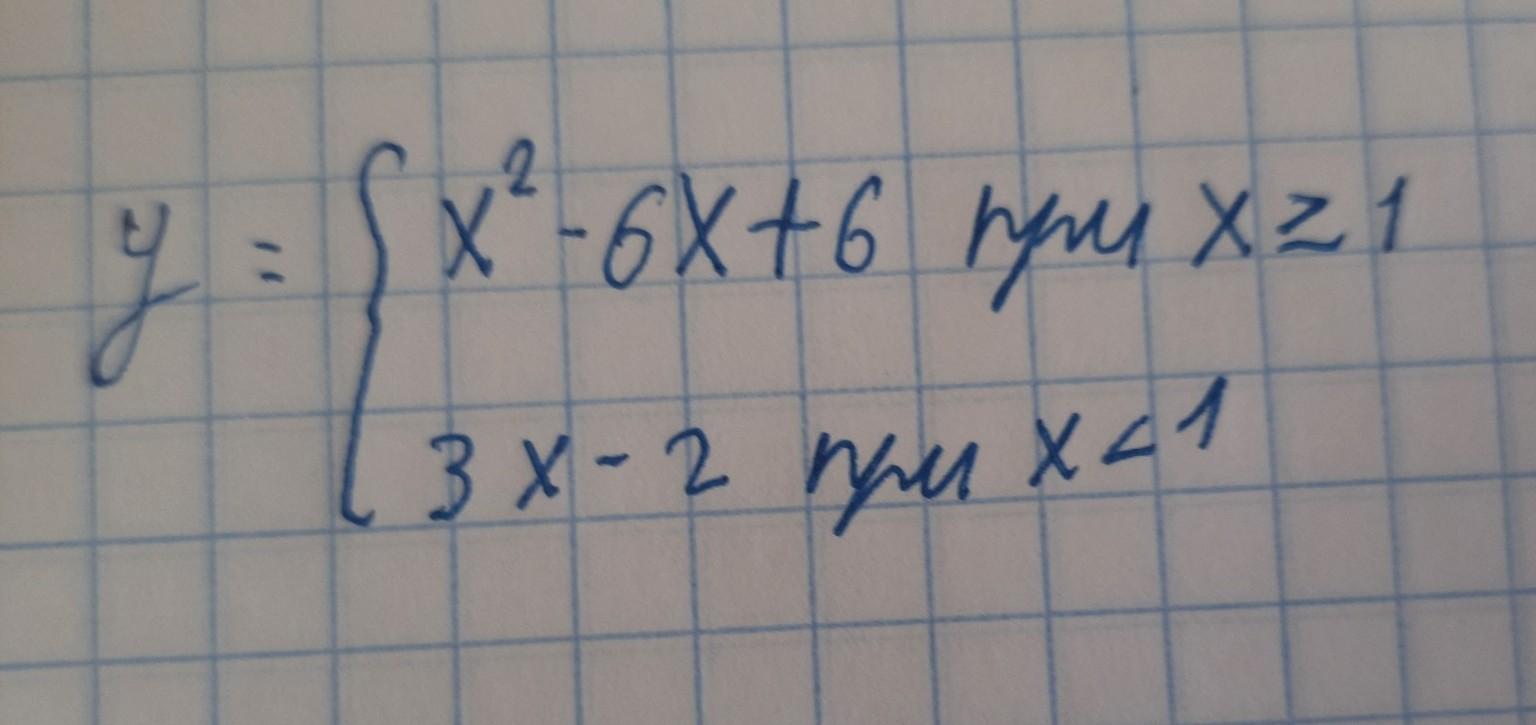 y = { x² - 6x + 6 при x ≥ 1
3x - 2 при x < 1